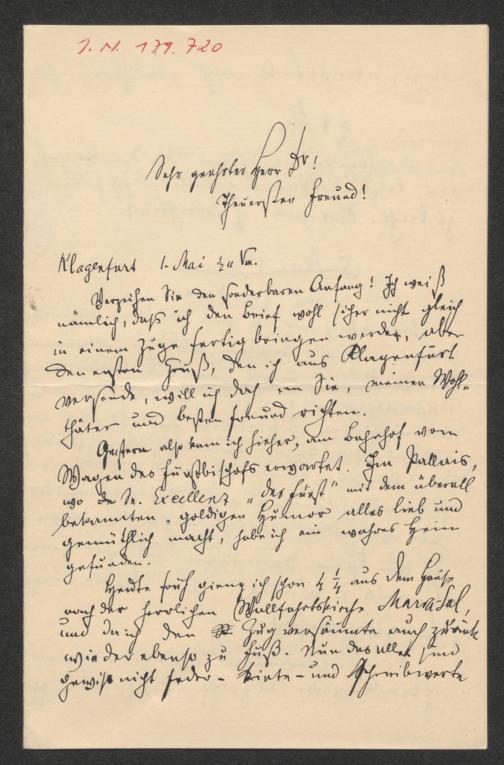 I. N. 179.720
Sehr geehrter Herr Dr!
Theuerster Freund!
Klagenfurt 1. Mai ½ 11 Vm.
Verzeihen Sie den sonderbaren Anfang! Ich weiß
nämlich, daß ich den Brief wohl sicher nicht gleich
in einem Zuge fertig bringen werde, aber
den ersten Gruß, den ich aus Klagenfurt
versende, will ich doch an Sie, meinen Wohl-
thäter und besten Freund richten.
Gestern also kam ich hieher, am Bahnhof vom
Wagen des Fürstbischofs erwartet. Im Pallais,
wo Se. Excellenz "der Fürst" mit dem überall
bekannten, goldigen Humor alles lieb und
gemüthlich macht, habe ich ein wahres Heim
gefunden.
Heute früh gieng ich schon 4 ¼ aus dem Hause
nach der herrlichen Wallfahrtskirche Maria-Sal,
und da ich den Zug versäumte auch zurück
wieder ebenso zu Fuß. Nun das alles sind
gewiß nicht Feder- Tinte- und Schreibwerte